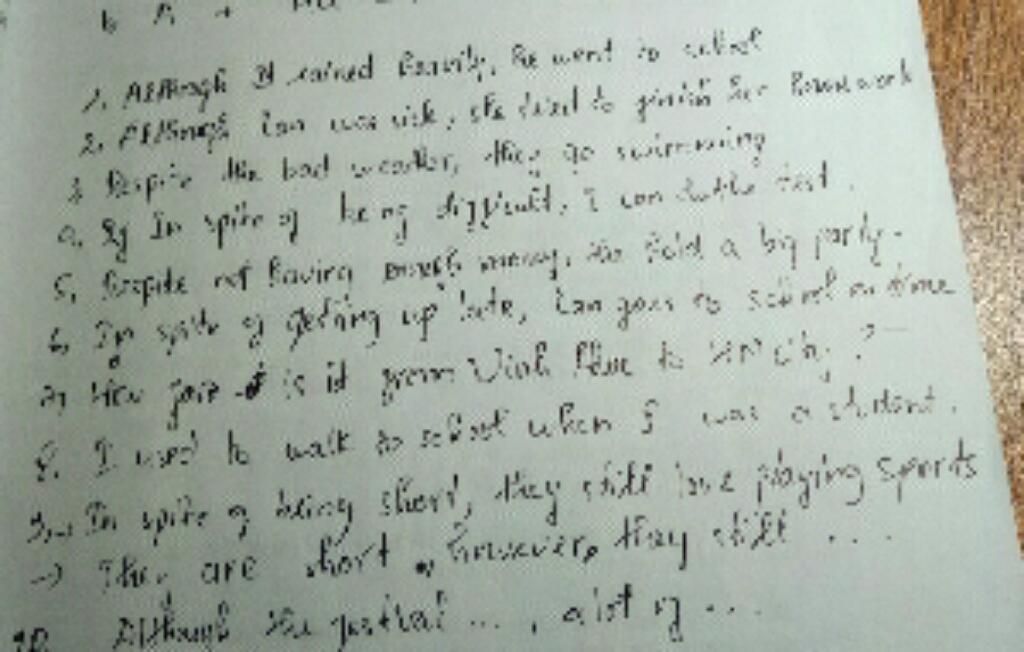 1. Although it rained heavily, he went to school
2. Although Lan was sick, she tried to finish her homework
3. Despite the bad weather, they go swimming
4. In spite of being difficult, I can do the test.
5. Despite not having enough money, he hold a big party.
6. In spite of getting up late, Lan goes to school on time
7, How far is it from Vinh Phuc to HN city ?
8. I used to walk to school when I was a student.
9. In spite of being short, they still love playing sports
→ They are short, however, they still ....
10. Although the festival ..., a lot of ...